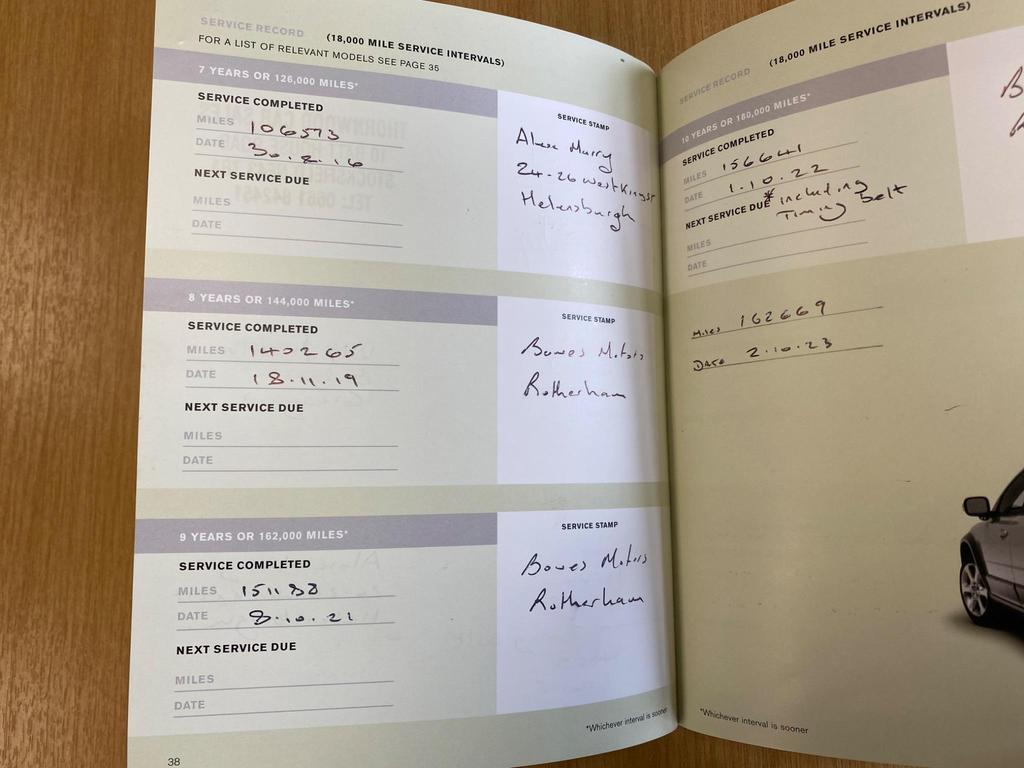 SERVICE RECORD (18,000 MILE SERVICE INTERVALS)
FOR A LIST OF RELEVANT MODELS SEE PAGE 35
7 YEARS OR 126,000 MILES*
SERVICE COMPLETED
MILES 106573
DATE 30.8.16
NEXT SERVICE DUE
MILES
DATE
SERVICE STAMP
24-26 West King St
Helensburgh
8 YEARS OR 144,000 MILES*
SERVICE COMPLETED
MILES 140265
DATE 18.11.19
NEXT SERVICE DUE
MILES
DATE
SERVICE STAMP
Bowes Motors
Rotherham
9 YEARS OR 162,000 MILES*
SERVICE COMPLETED
MILES 151183
DATE 8.10.21
NEXT SERVICE DUE
MILES
DATE
SERVICE STAMP
Bowes Motors
Rotherham
*Whichever interval is sooner
38
SERVICE RECORD (18,000 MILE SERVICE INTERVALS)
10 YEARS OR 180,000 MILES*
SERVICE COMPLETED
MILES 156641
DATE 1.10.22
NEXT SERVICE DUE * including
Timing Belt
MILES
DATE
Miles 162669
Date 2.10.23
*Whichever interval is sooner